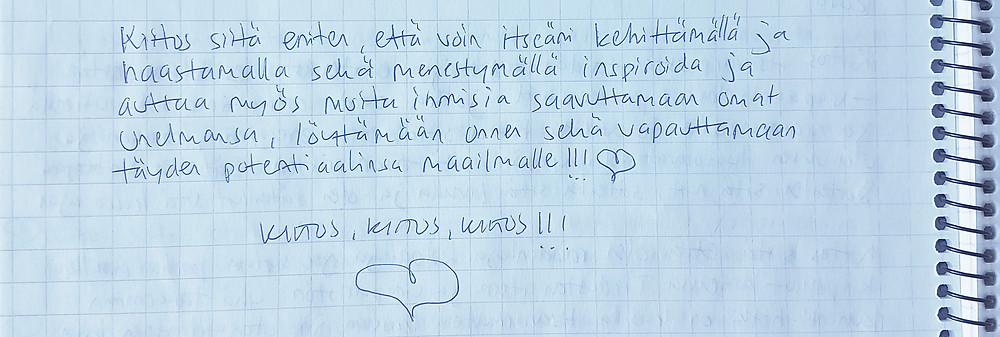 Kiitos siitä eniten, että voin itseäni kehittämällä ja
haastamalla sekä menestymällä inspiroida ja
auttaa myös muita ihmisiä saavuttamaan omat
unelmansa, löytämään onnen sekä vapauttamaan
täyden potentiaalinsa maailmalle!!!
KIITOS, KIITOS, KIITOS!!!